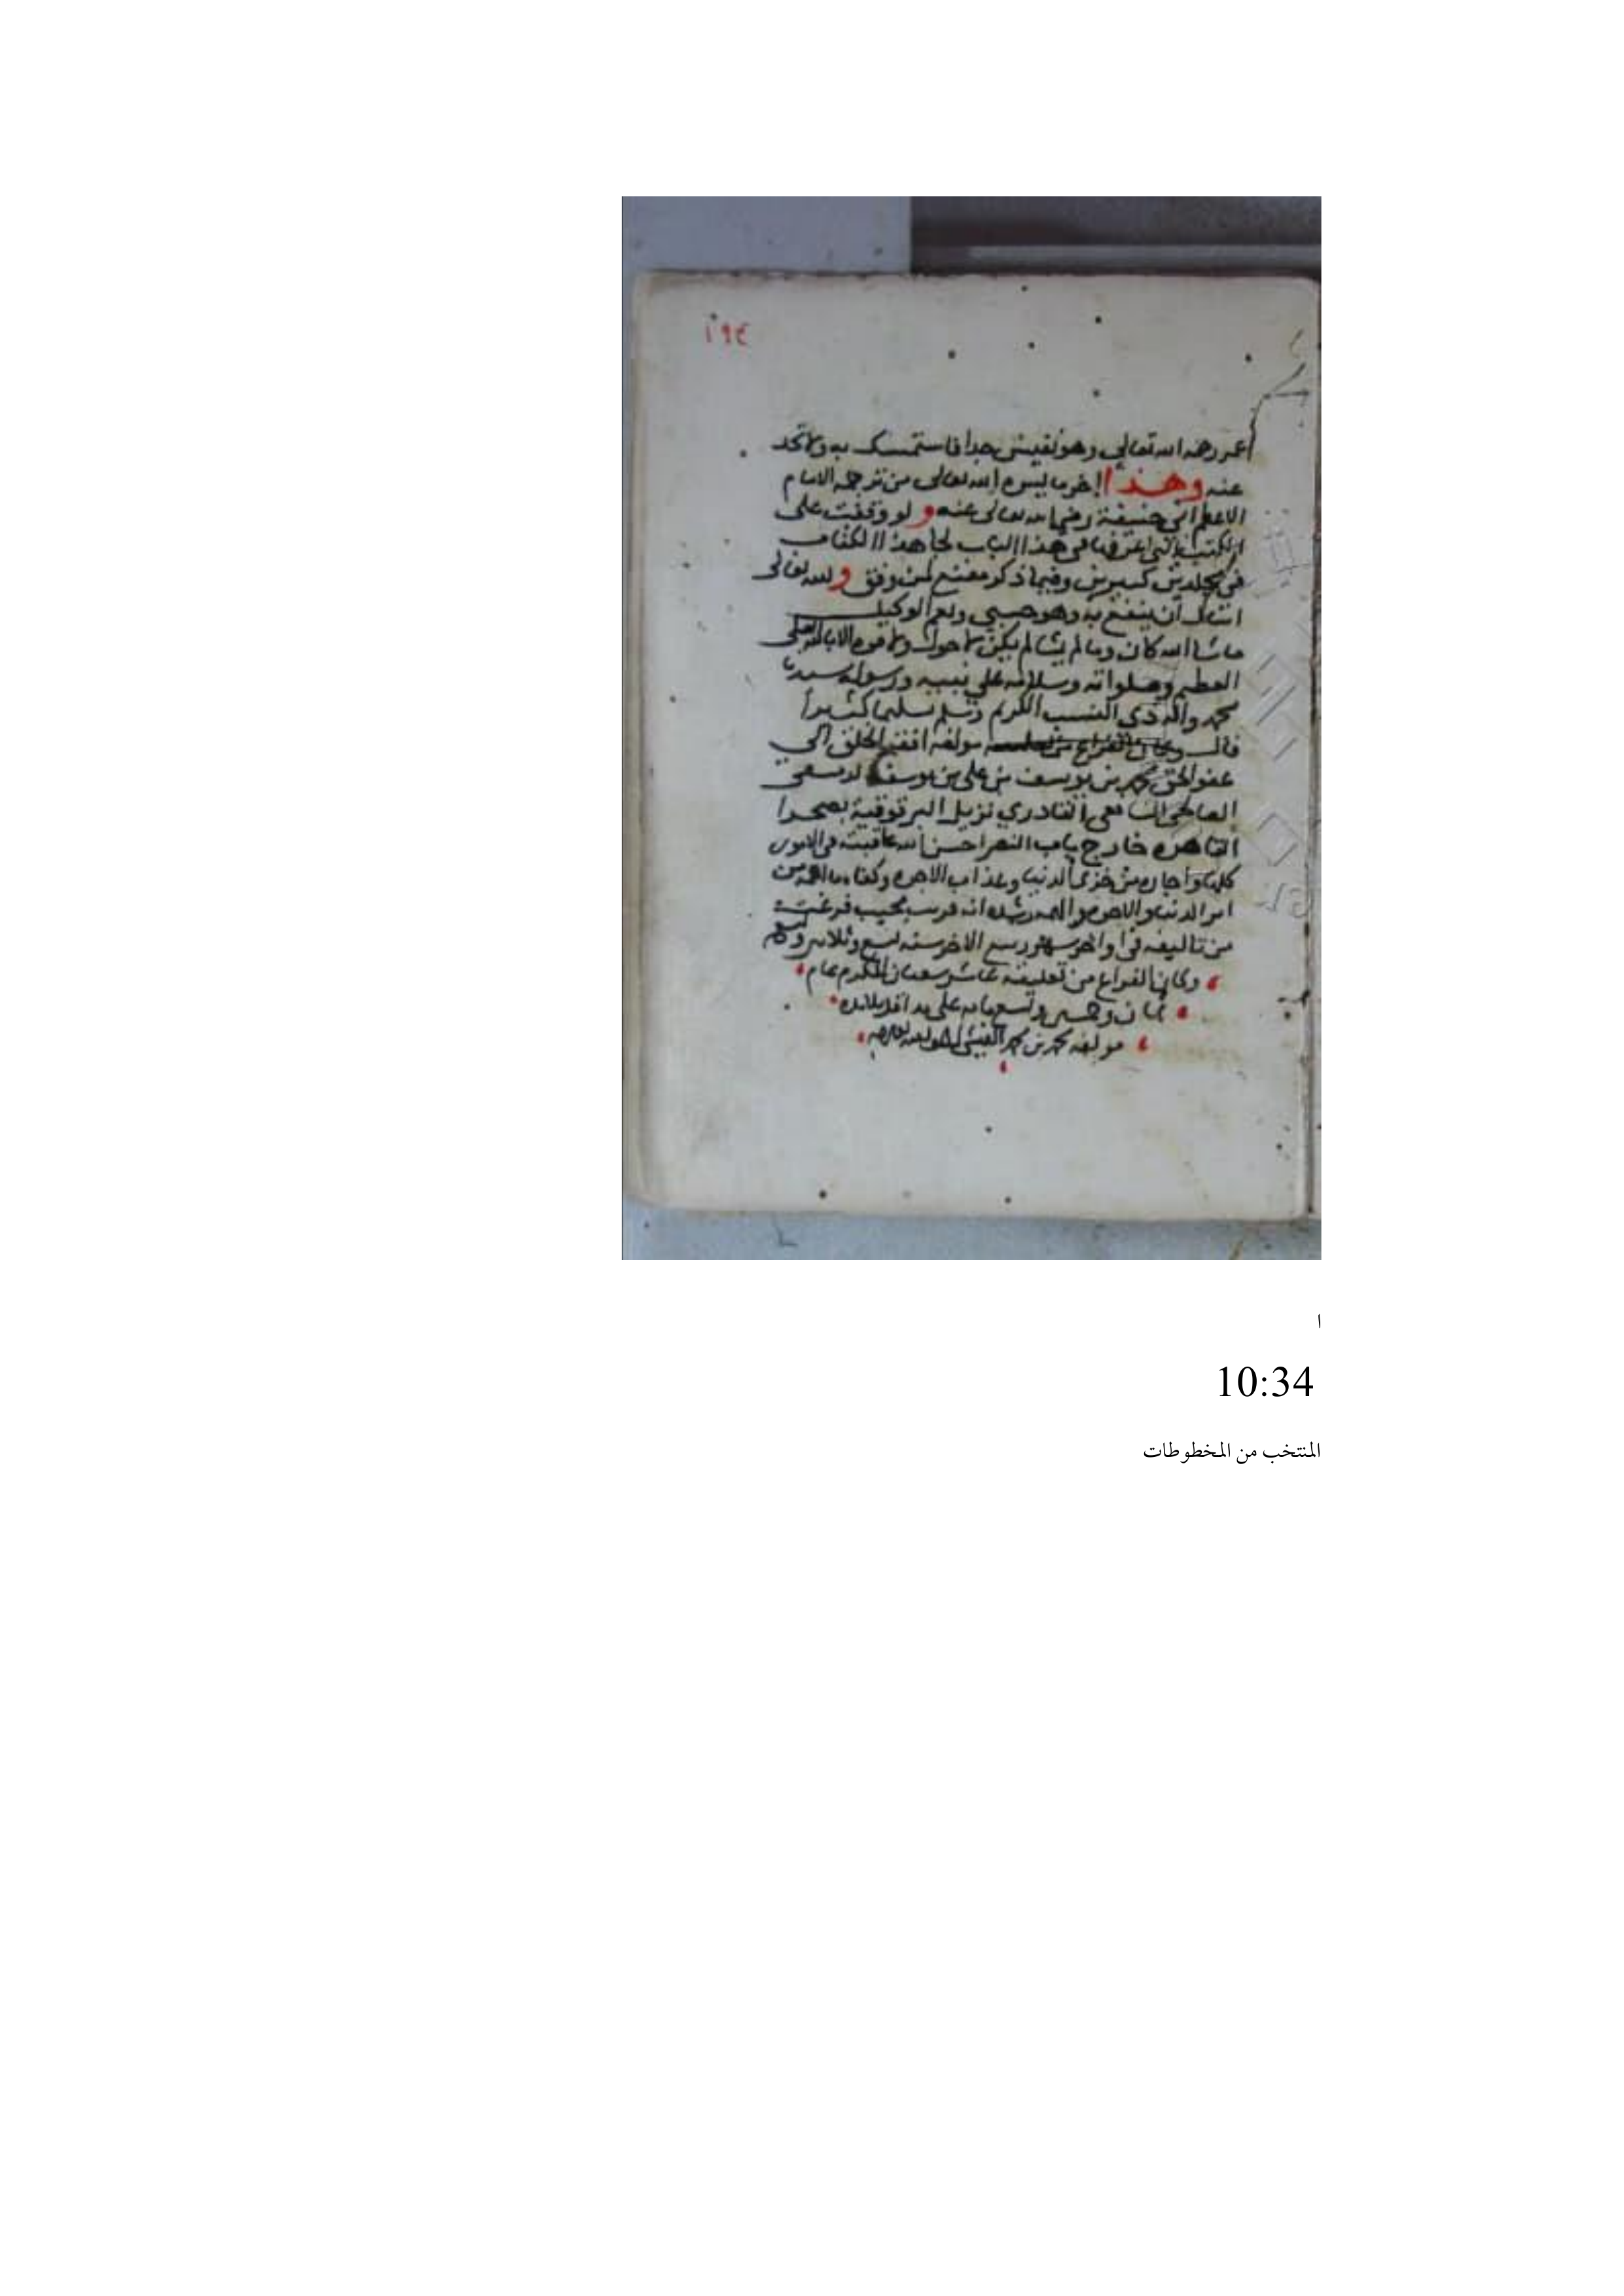 ١٩٤
عمر رحمه الله تعالى وهو نفيس جدا فاستمسك به ولا تحد
عنه وهذا اخر ما يسره الله تعالى من ترجمة الامام
الاعظم ابي حنيفة رضي الله تعالى عنه ولو وقفت على
الكتب التي في هذا الباب لجا هذا الكتاب
في مجلدين كبيرين وفيما ذكر مقنع لمن وفق والله تعالى
اسال ان ينفع به وهو حسبي ونعم الوكيل
ماشا الله كان وما لم يشا لم يكن لا حول ولا قوه الا بالله العلي
العظيم وصلواته وسلامه على نبيه ورسوله سيدنا
محمد واله ذي النسب الكريم وسلم تسليما كثيرا
قال وكان الفراغ من مولفه افقر الخلق الى
عفو الحق محمد بن يوسف بن علي بن يوسف الدمشقي
الصالحي الشافعي القادري نزيل البرقوقية بصحرا
القاهره خارج باب النصر احسن الله عاقبته في الامور
كلها واجاره من خزي الدنيا وعذاب الاخره وكفاه ما اهمه من
امر الدنيا والاخره والهمه رشده انه قريب مجيب فرغت
من تاليفه في اواخر شهر ربيع الاخر سنه تسع وثلاثين وتسعمايه
وكان الفراغ من تعليقه عاشر شعبان المكرم عام
ثمان وخمسين وتسعمايه على يد افقر تلامذه
مولفه محمد بن محمد الفيشي
ا
10:34
المنتخب من المخطوطات